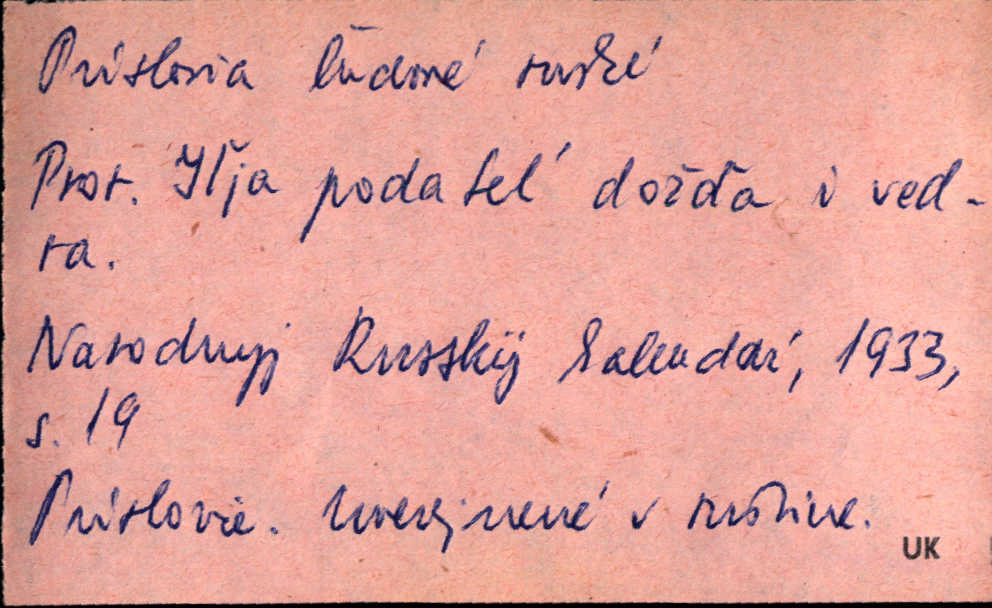 Príslovia ľudové ruské
Pror. Iľja podateľ dožďa i ved-
ra.
Narodnyj Russkij kalendar, 1933,
s. 19
Príslovie. Uverejnené v ruštine.
UK